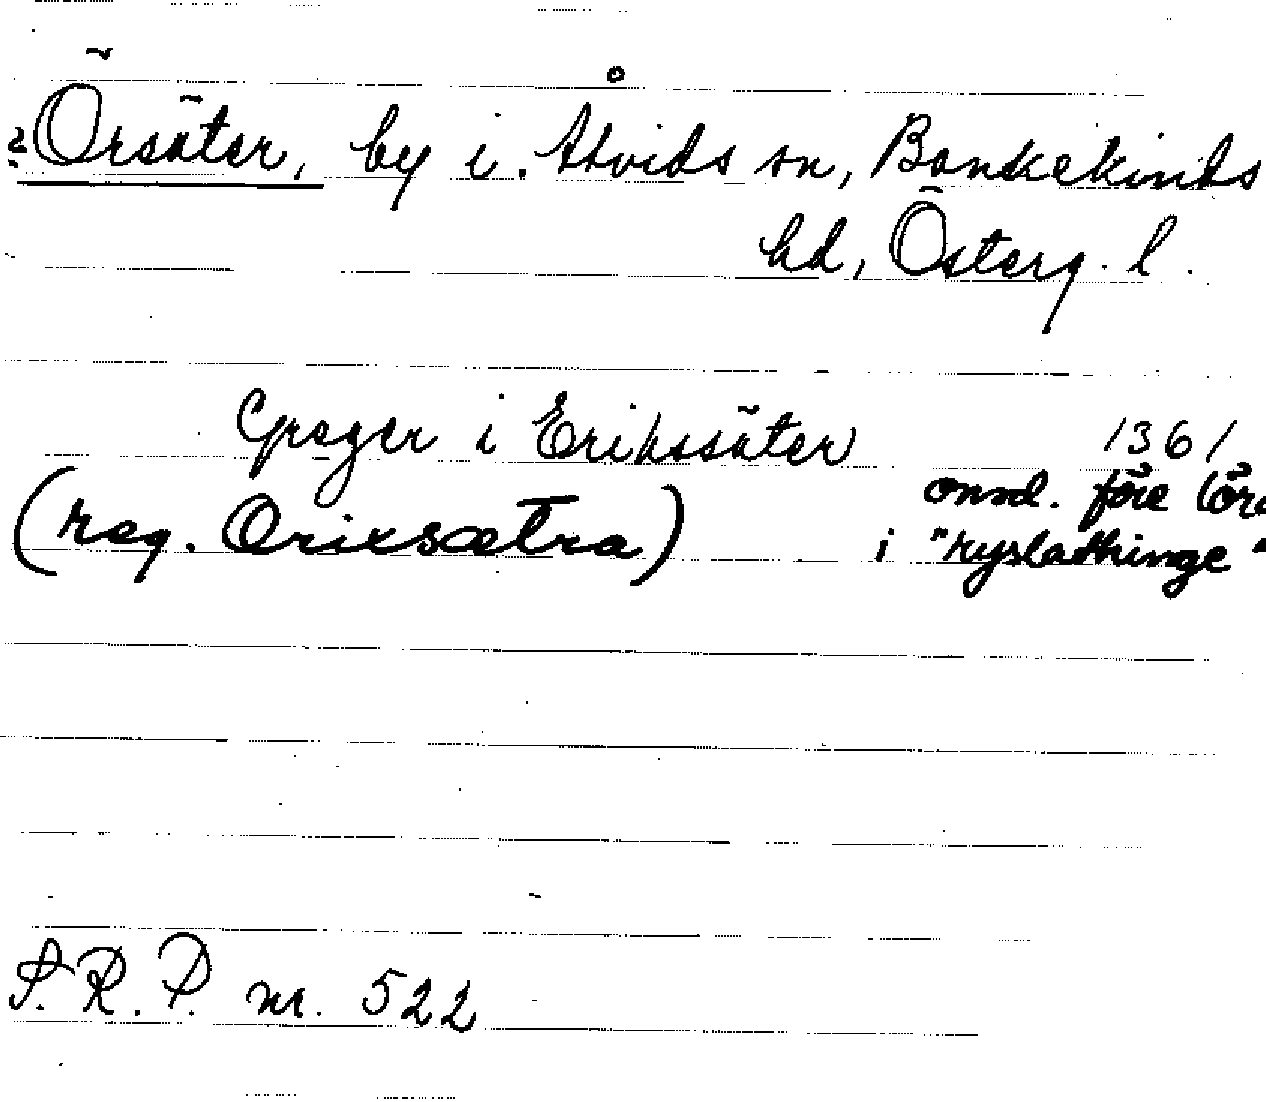 ? Örsäter, by i Åtvids sn, Bankekinds
hd, Österg. l.
Greger i Erikssäter 1361
omnd. före
(reg. Ericsætra) i "ryslathinge"
S. R. P. nr. 522